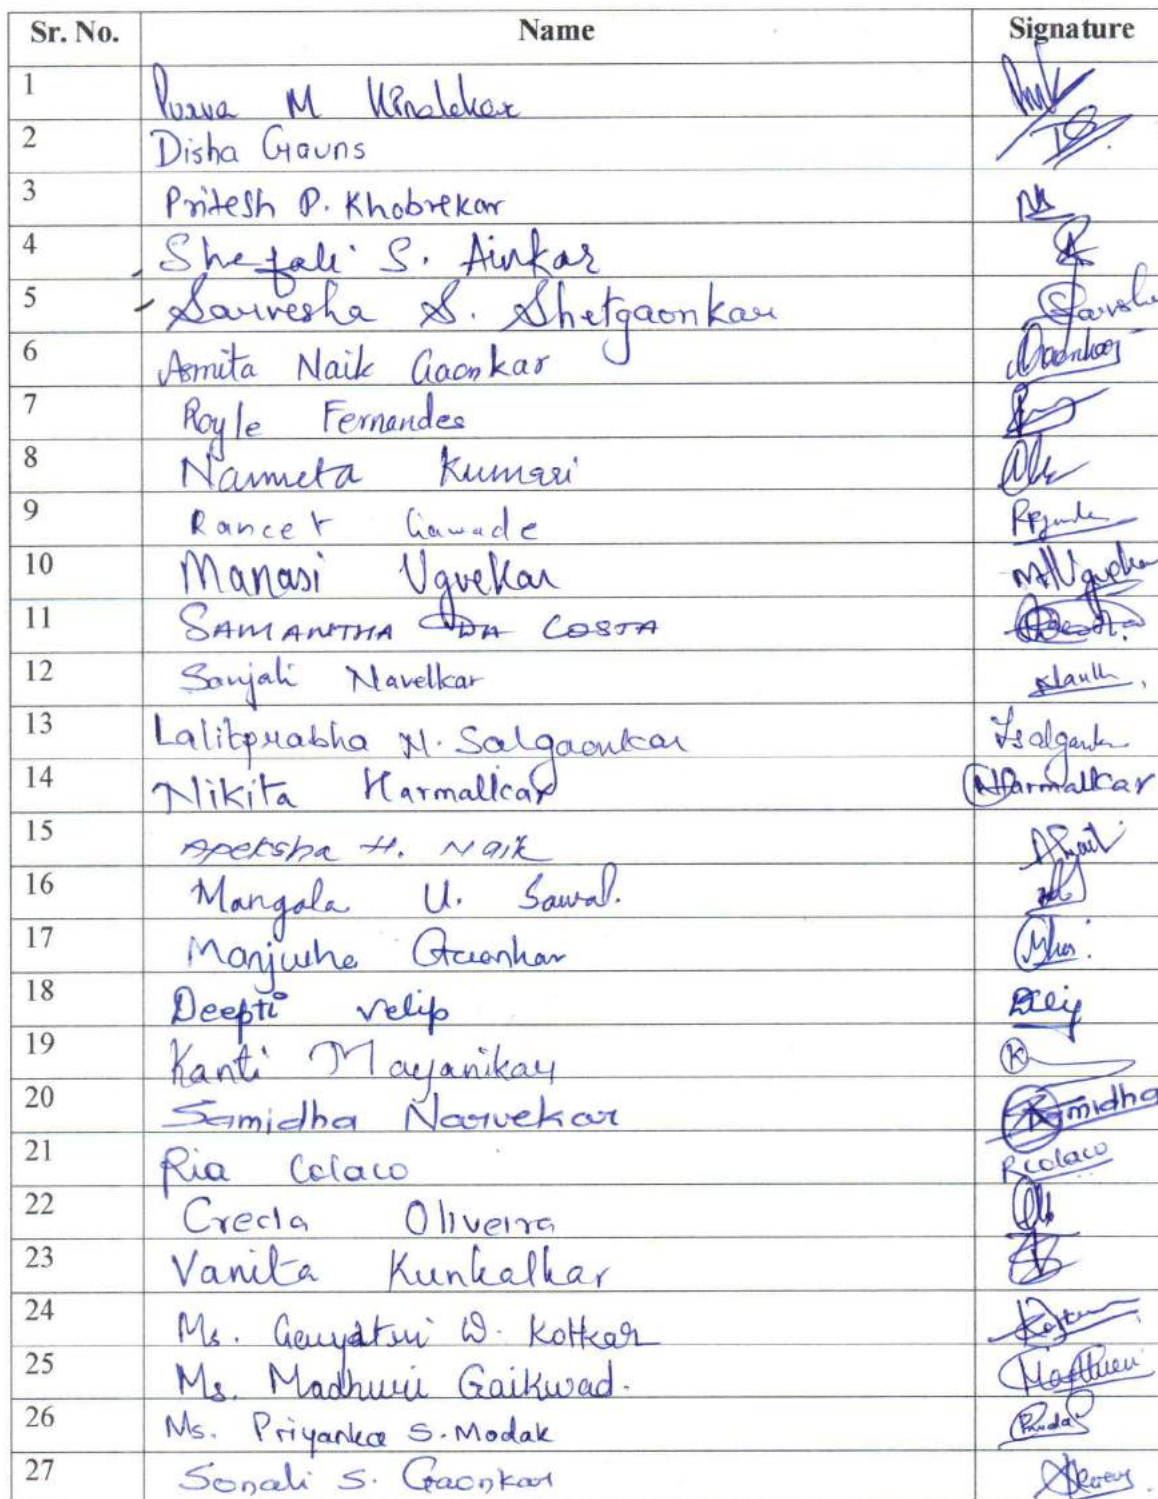 Sr. No. Name Signature
1 Purva M Kinalekar
2 Disha Gauns DG.
3 Pritesh P. Khobrekar
4 Shefali S. Ainkar
5 Sarvesha S. Shetgaonkar
6 Asmita Naik Gaonkar Gaonkar
7 Royle Fernandes
8 Namreta Kumari
9 Raneet Gawade
10 Manasi Ugvekar
11 SAMANTHA DA COSTA
12 Sanjali Navelkar
13 Lalitprabha N. Salgaonkar
14 Nikita Harmalkar NHarmalkar
15 Apeksha H. Naik
16 Mangala U. Sawal.
17 Manjusha Gaonkar
18 Deepti Velip
19 Kanti Mayanikar K
20 Samidha Narvekar Samidha
21 Ria Colaco RColaco
22 Creda Oliveira
23 Vanita Kunkalkar
24 Ms. Gauyatri W. Kotkar
25 Ms. Madhuri Gaikwad. Madhuri
26 Ms. Priyanka S. Modak
27 Sonali S. Gaonkar